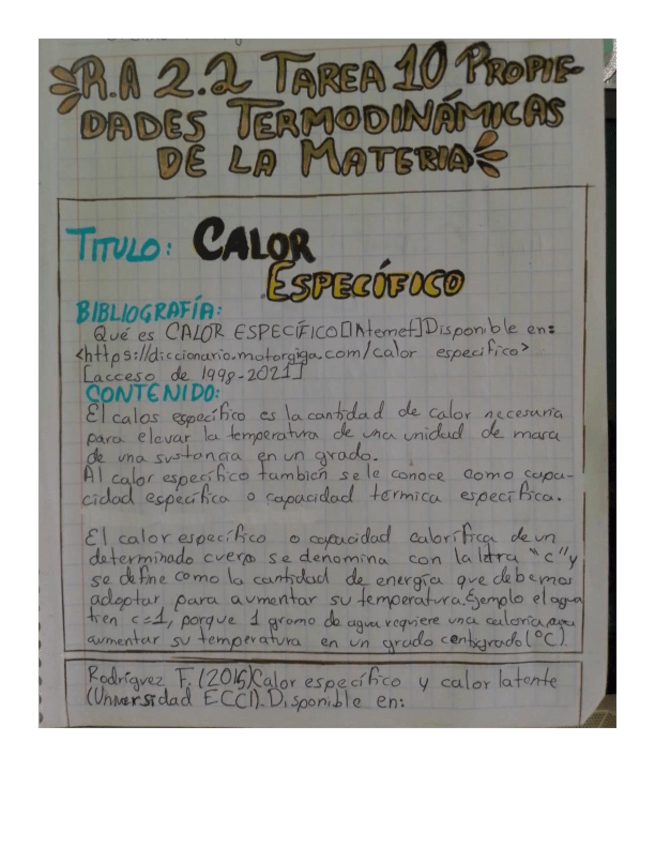 R.A 2.2 TAREA 10 PROPIE-
DADES TERMODINÁMICAS
DE LA MATERIA
TITULO: CALOR
ESPECÍFICO
BIBLIOGRAFÍA:
Qué es CALOR ESPECÍFICO[INternet]Disponible en:
<https://diccionario.motorgiga.com/calor especifico>
[acceso de 1998-2021]
CONTENIDO:
El calos específico es la cantidad de calor necesaria
para elevar la temperatura de una unidad de masa
de una sustancia en un grado.
Al calor específico también se le conoce como capa-
cidad específica o capacidad térmica específica.
El calor específico o capacidad calorífica de un
determinado cuerpo se denomina con la letra "c" y
se define como la cantidad de energía que debemos
adoptar para aumentar su temperatura. Ejemplo el agua
tien c=1, porque 1 gramo de agua requiere una caloría para
aumentar su temperatura en un grado centigrado (°C).
Rodríguez F. (2015)Calor específico y calor latente
(Universidad ECCI). Disponible en: